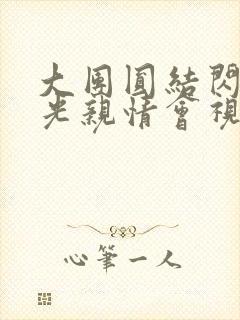 大團圓結閃
光親情會視
心筆一人